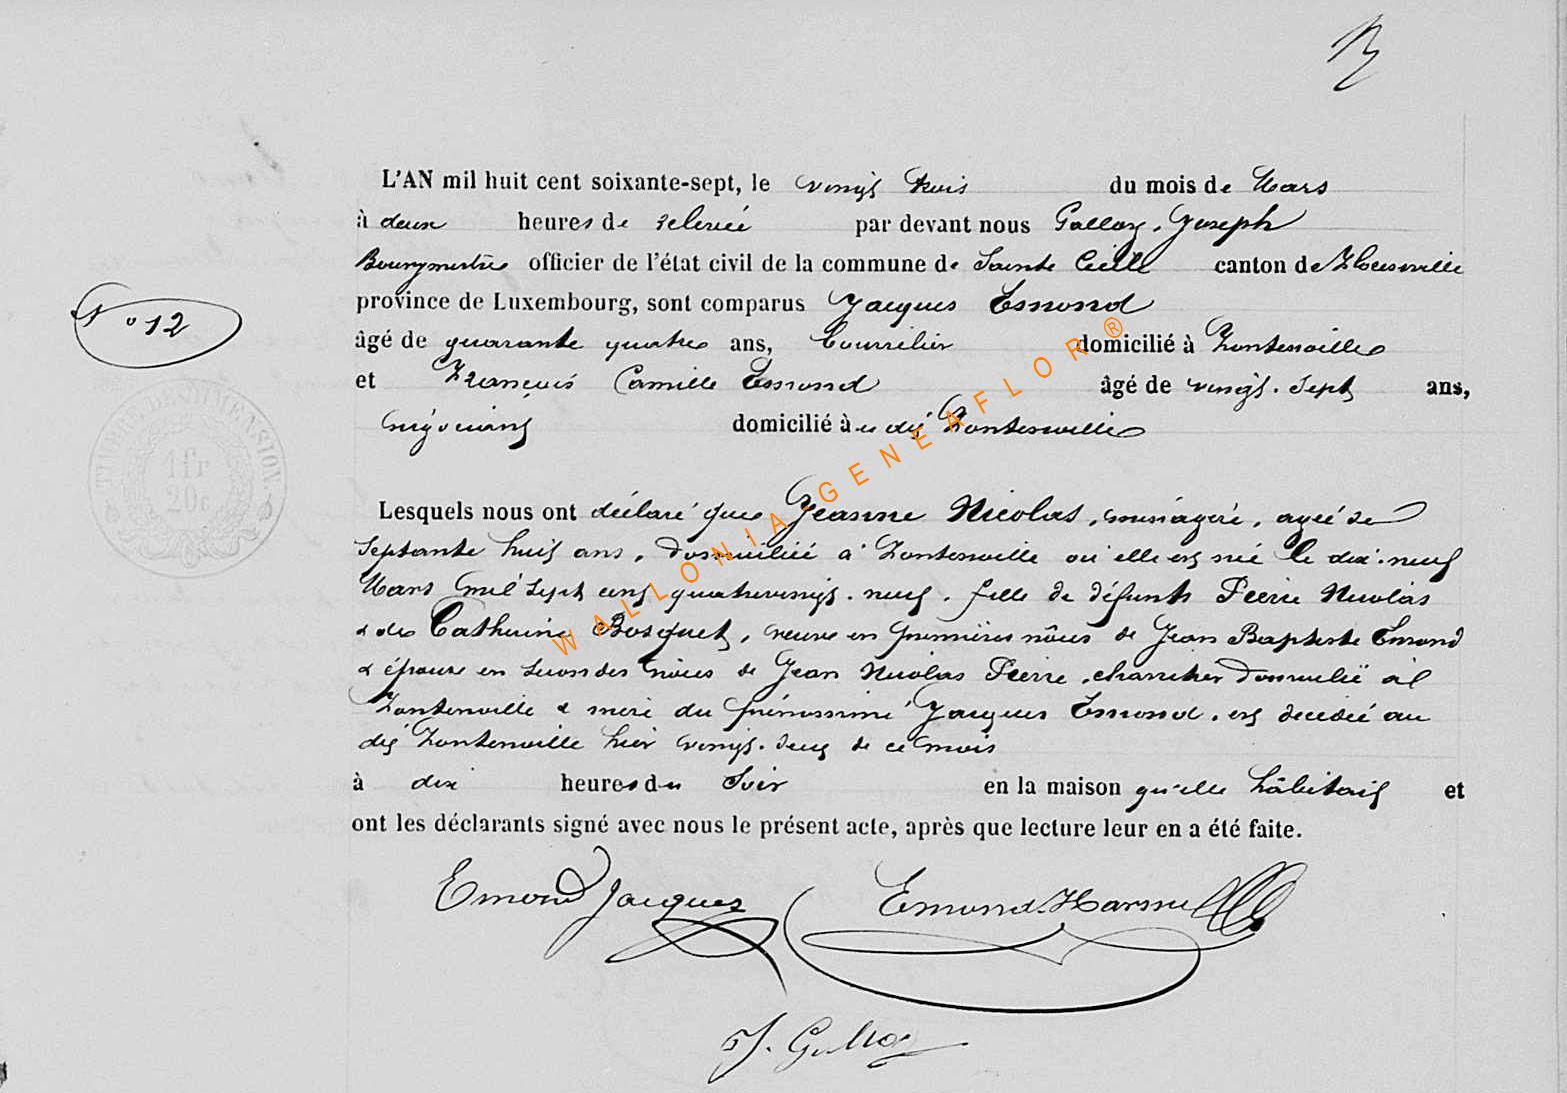 L'AN mil huit cent soixante-sept, le vingt trois du mois de Mars
à deux heures de relevée par devant nous Gallaz, Joseph
Bourgmestre officier de l'état civil de la commune de Sainte Cécile canton de Florenville
province de Luxembourg, sont comparus Jacques Emond
N° 12
âgé de quarante quatre ans, bourrelier domicilié à Fontenoille
et François Camille Emond âgé de vingt-sept ans,
négociant domicilié au dit Fontenoille
TIMBRE DE DIMENSION
1fr
20c
Lesquels nous ont déclaré que Jeanne Nicolas, ménagère, agée de
septante huit ans, domiciliée à Fontenoille où elle est née le dix-neuf
Mars mil sept cent quatrevingt-neuf, fille de défunts Pierre Nicolas
& de Catherine Bosquet, veuve en premières nôces de Jean Baptiste Emond
& épouse en secondes nôces de Jean Nicolas Pierre, domicilié à
Fontenoille & mère du prénommé Jacques Emond, est décédée au
dit Fontenoille hier vingt-deux de ce mois
à dix heures du Soir en la maison qu'elle habitait et
ont les déclarants signé avec nous le présent acte, après que lecture leur en a été faite.
Emond Jacques Emond
WALLONIA GENEAFLOR®